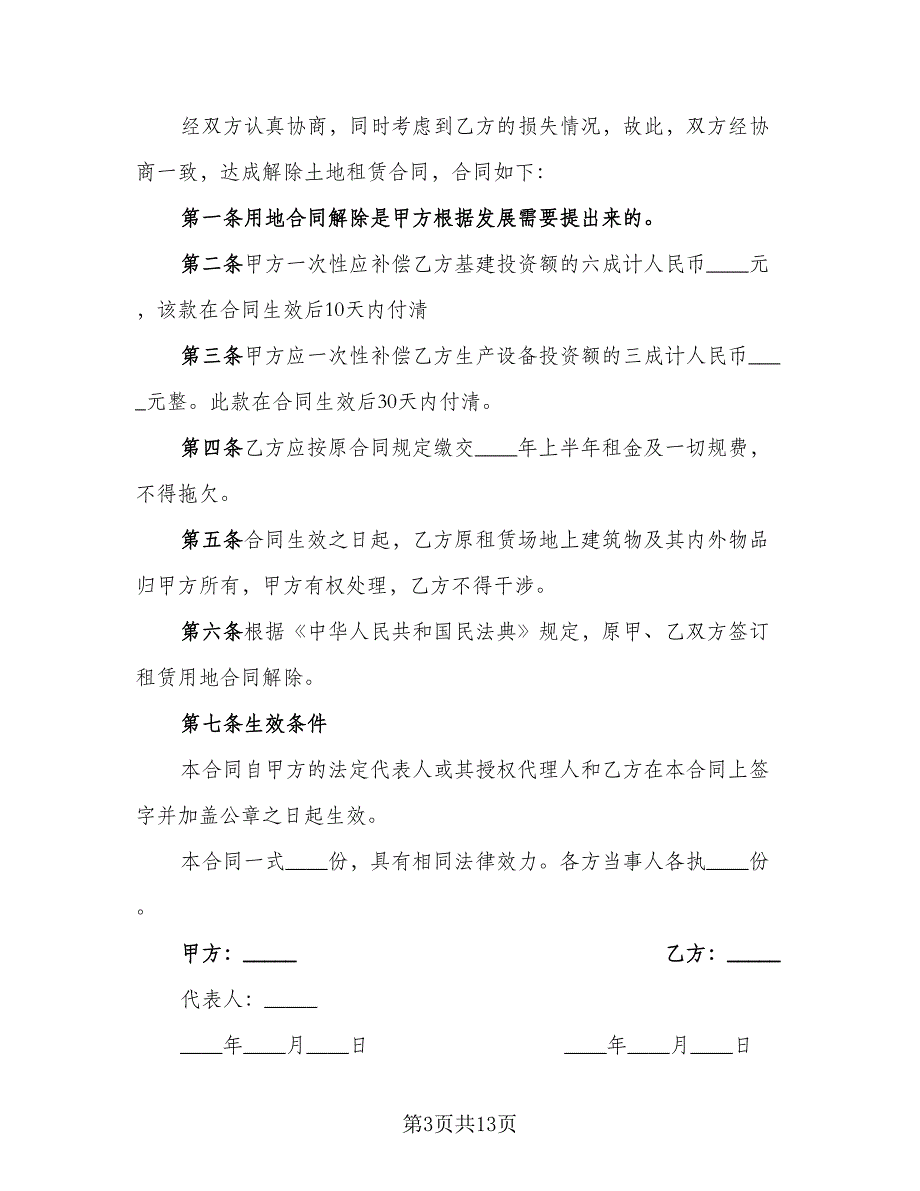 经双方认真协商，同时考虑到乙方的损失情况，故此，双方经协
商一致，达成解除土地租赁合同，合同如下：
第一条用地合同解除是甲方根据发展需要提出来的。
第二条甲方一次性应补偿乙方基建投资额的六成计人民币____元
，该款在合同生效后10天内付清
第三条甲方应一次性补偿乙方生产设备投资额的三成计人民币___
_元整。此款在合同生效后30天内付清。
第四条乙方应按原合同规定缴交____年上半年租金及一切规费，
不得拖欠。
第五条合同生效之日起，乙方原租赁场地上建筑物及其内外物品
归甲方所有，甲方有权处理，乙方不得干涉。
第六条根据《中华人民共和国民法典》规定，原甲、乙双方签订
租赁用地合同解除。
第七条生效条件
本合同自甲方的法定代表人或其授权代理人和乙方在本合同上签
字并加盖公章之日起生效。
本合同一式____份，具有相同法律效力。各方当事人各执____份
。
甲方：_____ 乙方：_____
代表人：_____
____年____月____日 ____年____月____日
第3页共13页